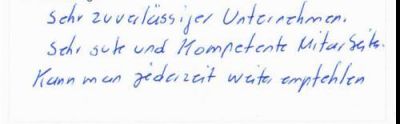 Sehr zuverlässiger Unternehmen.
Sehr gute und Kompetente Mitarbeite.
Kann man jederzeit weiter empfehlen